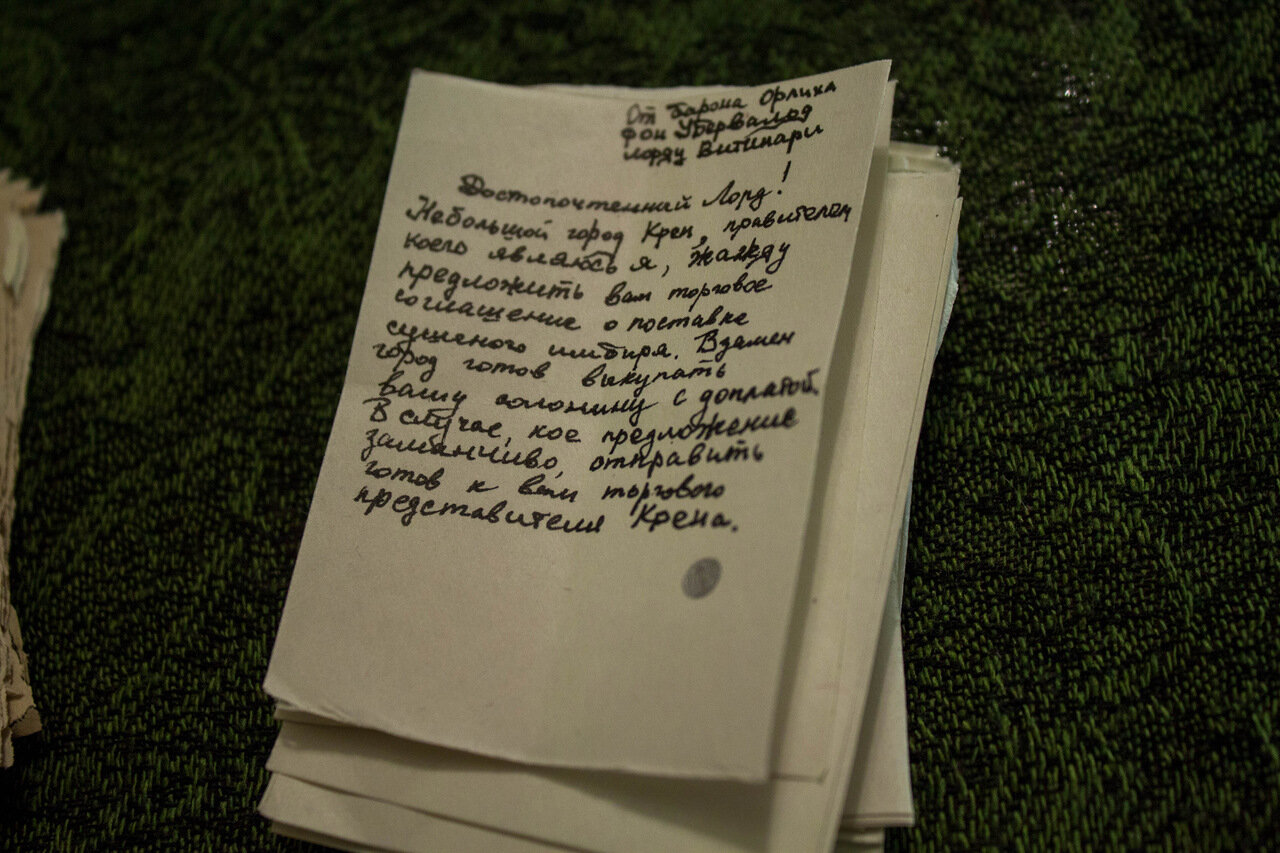 От Барона Орлиха
фон Убервальд
лорду Витинари
Достопочтенний Лорд!
Небольшой город Крен, правителем
коего являюсь я, жажду
предложить вам торговое
соглашение о поставке
сушеного имбиря. Взамен
город готов выкупать
вашу солонину с доплатой.
В случае, кое предложение
заманчиво, отправить
готов к вам торгового
представителя Крена.